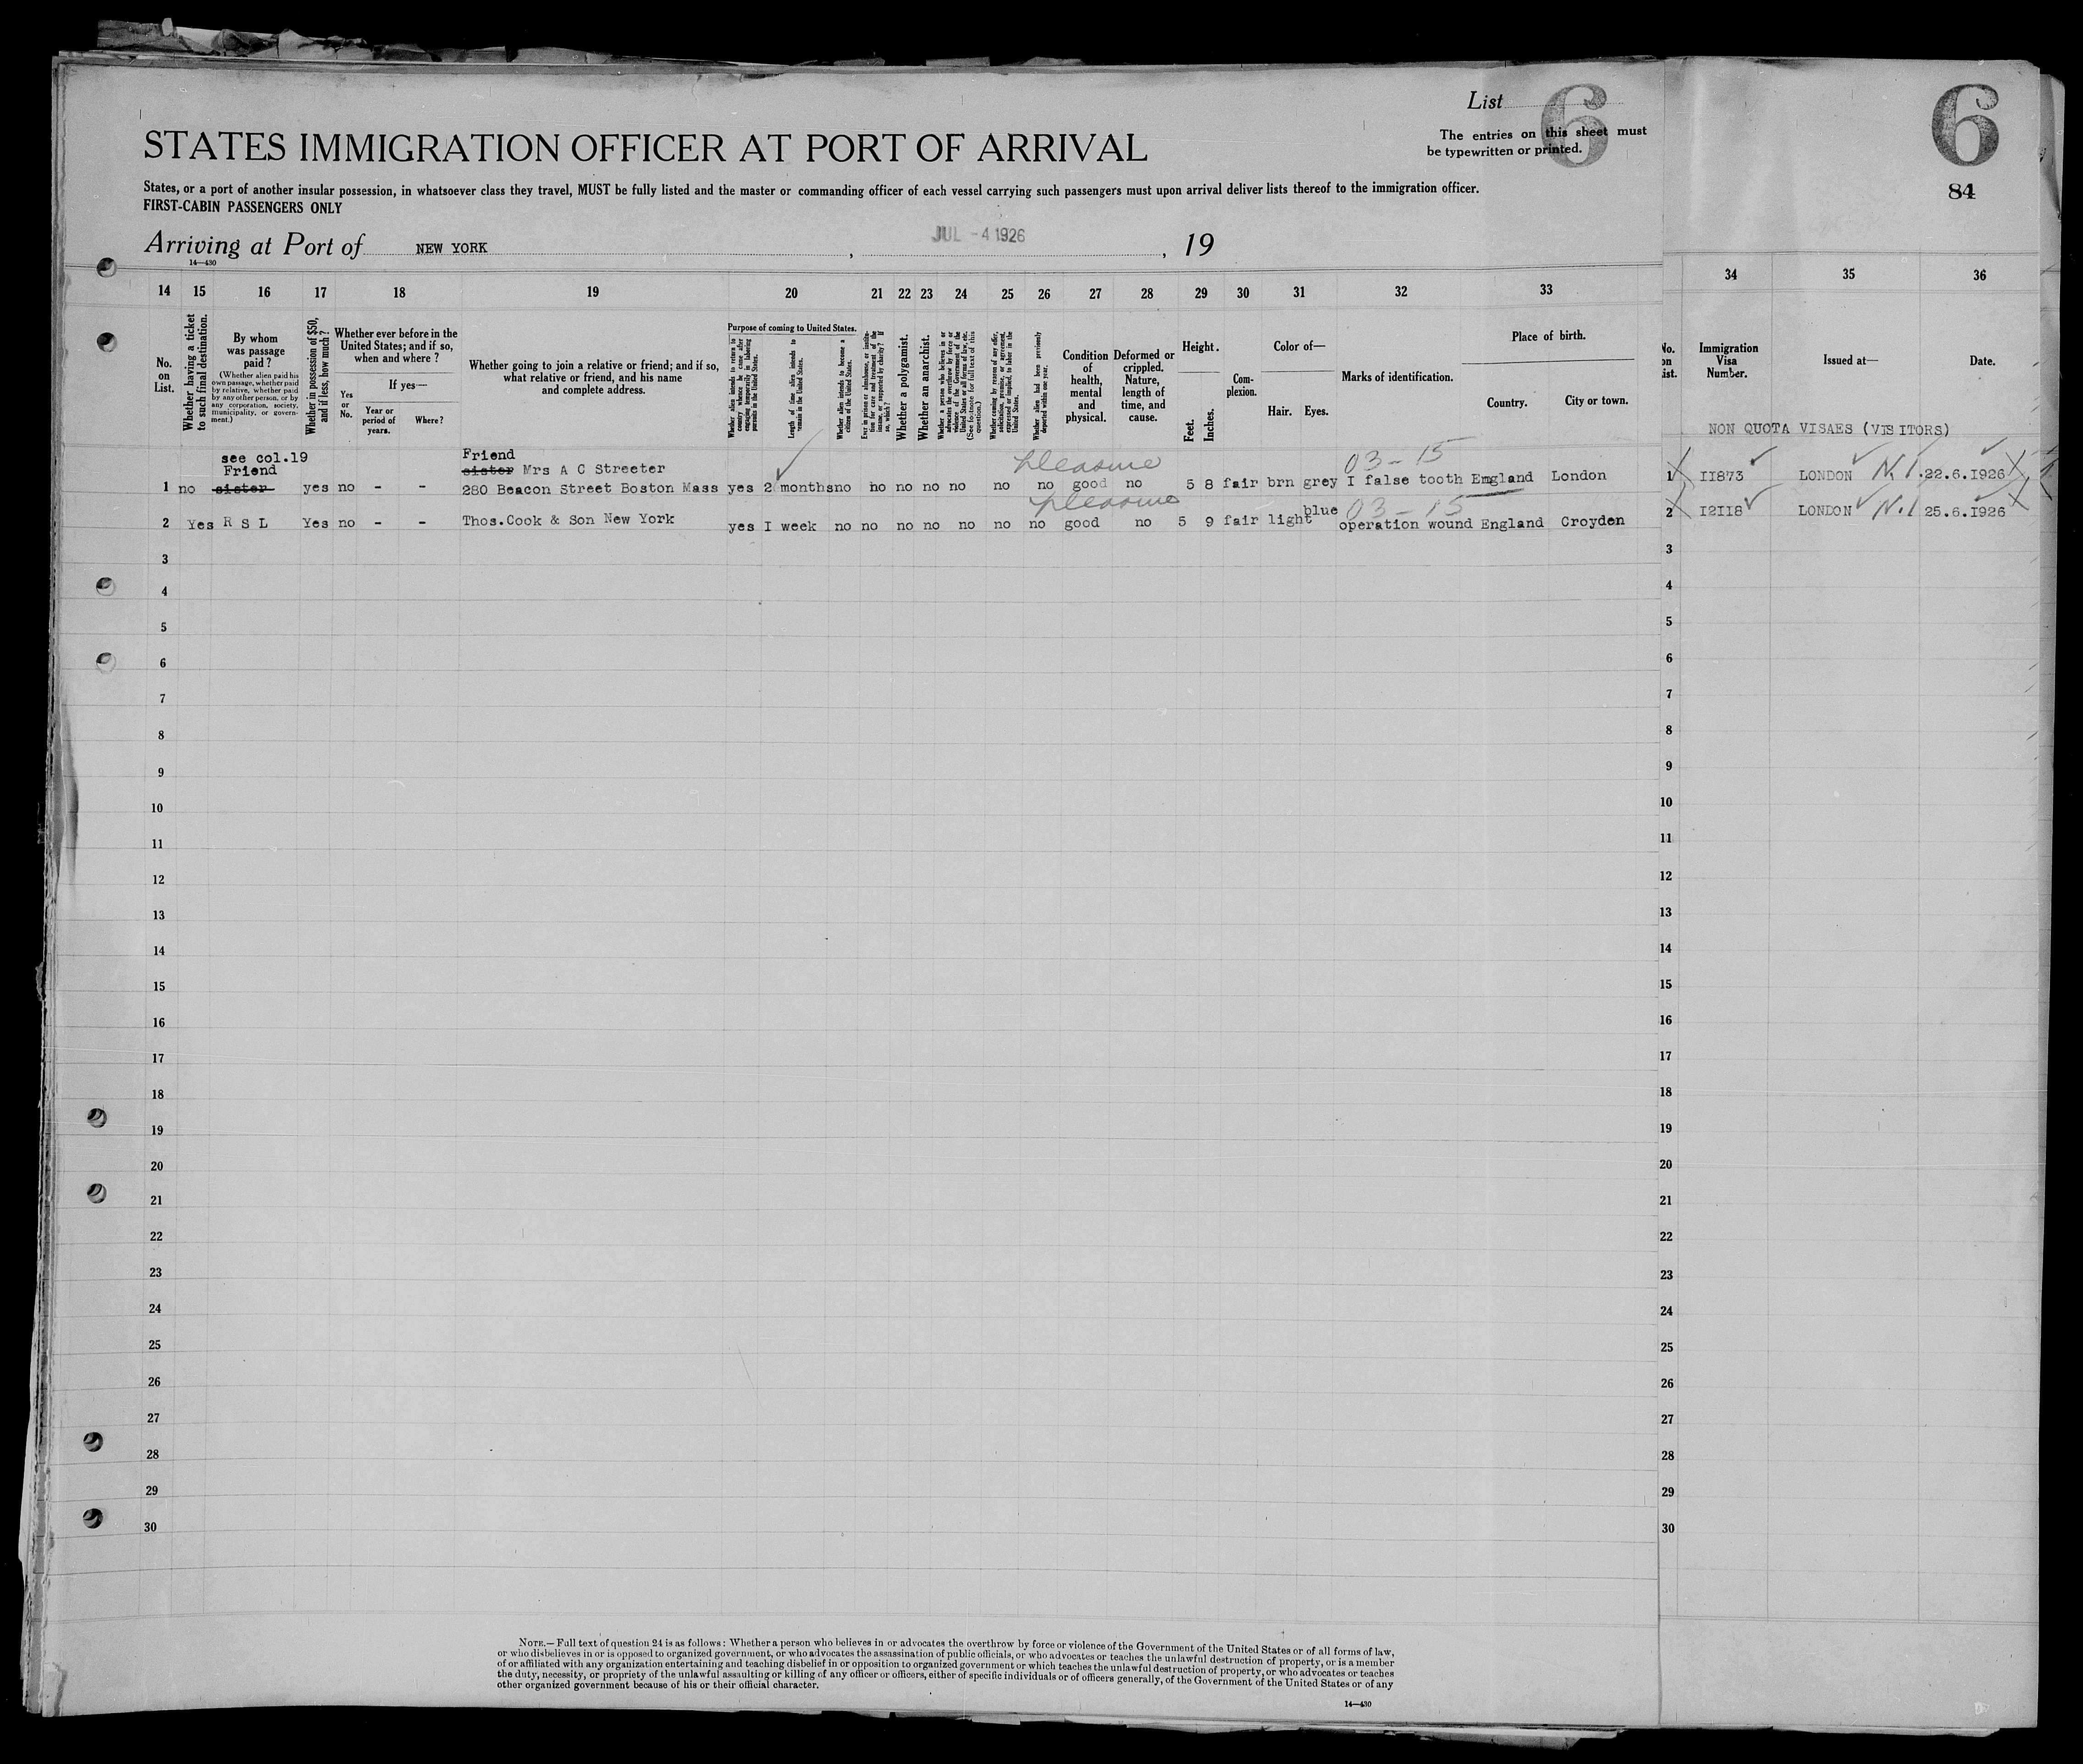 List 6
The entries on this sheet must
be typewritten or printed.
6
84
STATES IMMIGRATION OFFICER AT PORT OF ARRIVAL
States, or a port of another insular possession, in whatsoever class they travel, MUST be fully listed and the master or commanding officer of each vessel carrying such passengers must upon arrival deliver lists thereof to the immigration officer.
FIRST-CABIN PASSENGERS ONLY
Arriving at Port of NEW YORK, JUL -4 1926, 19
14—430
14 15 16 17 18 19 20 21 22 23 24 25 26 27 28 29 30 31 32 33 34 35 36
No. on List.
Whether having a ticket to such final destination.
By whom was passage paid?
(Whether alien paid his own passage, whether paid by relative, whether paid by any other person, or by any corporation, society, municipality, or government.)
Whether in possession of $50, and if less, how much?
Whether ever before in the United States; and if so, when and where?
Yes or No.
If yes—
Year or period of years.
Where?
Whether going to join a relative or friend; and if so, what relative or friend, and his name and complete address.
Purpose of coming to United States.
Whether alien intends to return to country whence he came after engaging temporarily in laboring pursuits in the United States.
Length of time alien intends to remain in the United States.
Whether alien intends to become a citizen of the United States.
Ever in prison or almshouse, or institution for care and treatment of the insane, or supported by charity? If so, which?
Whether a polygamist.
Whether an anarchist.
Whether a person who believes in or advocates the overthrow by force or violence of the Government of the United States or all forms of law, etc. (See footnote for full text of this question.)
Whether coming by reason of any offer, solicitation, promise, or agreement, expressed or implied, to labor in the United States.
Whether alien had been previously deported within one year.
Condition of health, mental and physical.
Deformed or crippled. Nature, length of time, and cause.
Height.
Feet.
Inches.
Complexion.
Color of—
Hair.
Eyes.
Marks of identification.
Place of birth.
Country.
City or town.
No. on List.
Immigration Visa Number.
Issued at—
Date.
NON QUOTA VISAES (VISITORS)
see col.19 Friend pleasure 03-15
Friend sister Mrs A C Streeter
1 no sister yes no - - 280 Beacon Street Boston Mass yes 2 months no no no no no no no good no 5 8 fair brn grey I false tooth England London 1 II873 LONDON N.1. 22.6.I926
pleasure blue 03-15
2 Yes R S L Yes no - - Thos.Cook & Son New York yes I week no no no no no no no good no 5 9 fair light operation wound England Croyden 2 I2II8 LONDON N.1 25.6.I926
3 3
4 4
5 5
6 6
7 7
8 8
9 9
10 10
11 11
12 12
13 13
14 14
15 15
16 16
17 17
18 18
19 19
20 20
21 21
22 22
23 23
24 24
25 25
26 26
27 27
28 28
29 29
30 30
NOTE.—Full text of question 24 is as follows: Whether a person who believes in or advocates the overthrow by force or violence of the Government of the United States or of all forms of law,
or who disbelieves in or is opposed to organized government, or who advocates the assassination of public officials, or who advocates or teaches the unlawful destruction of property, or is a member
of or affiliated with any organization entertaining and teaching disbelief in or opposition to organized government or which teaches the unlawful destruction of property, or who advocates or teaches
the duty, necessity, or propriety of the unlawful assaulting or killing of any officer or officers, either of specific individuals or of officers generally, of the Government of the United States or of any
other organized government because of his or their official character.
14—430